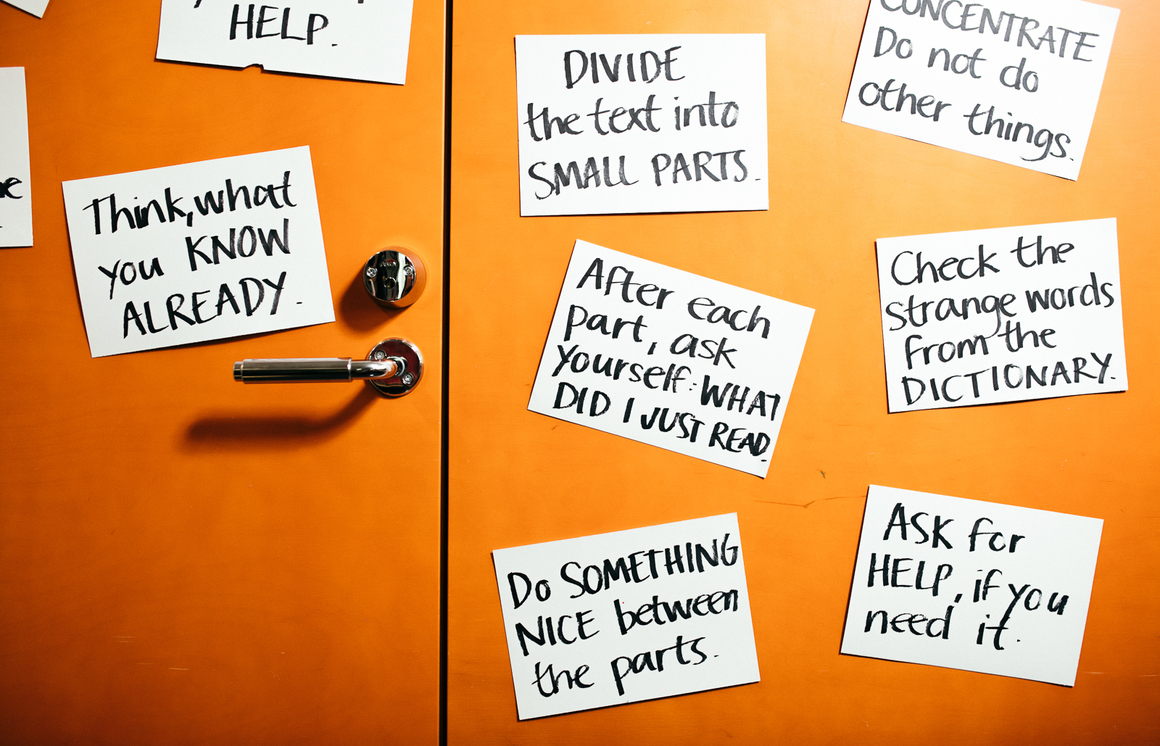 HELP.
Think, what
you KNOW
ALREADY.
DIVIDE
the text into
SMALL PARTS.
After each
part, ask
yourself: WHAT
DID I JUST READ.
Do SOMETHING
NICE between
the parts.
CONCENTRATE
Do not do
other things.
Check the
strange words
from the
DICTIONARY.
ASK for
HELP, if you
need it.